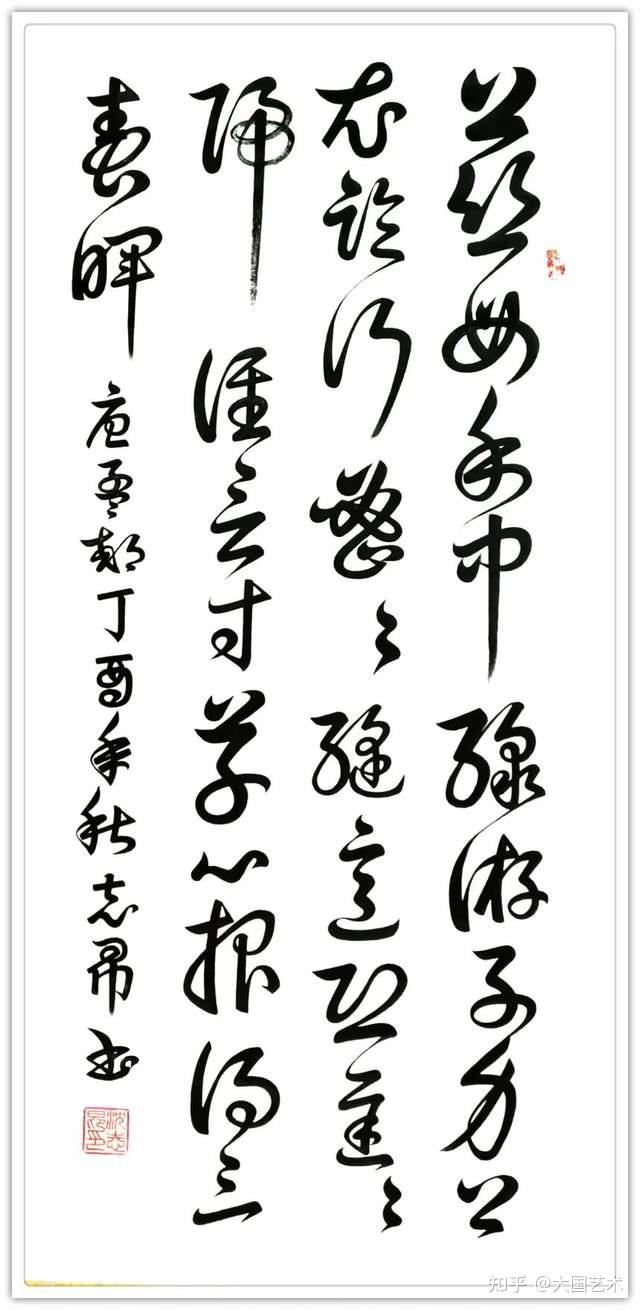 慈母手中線游子身上
衣臨行密々縫意恐遲々
歸誰言寸草心報得三
春暉
唐孟郊丁酉年秋志昂書
沈志昂印
知乎 @大国艺术